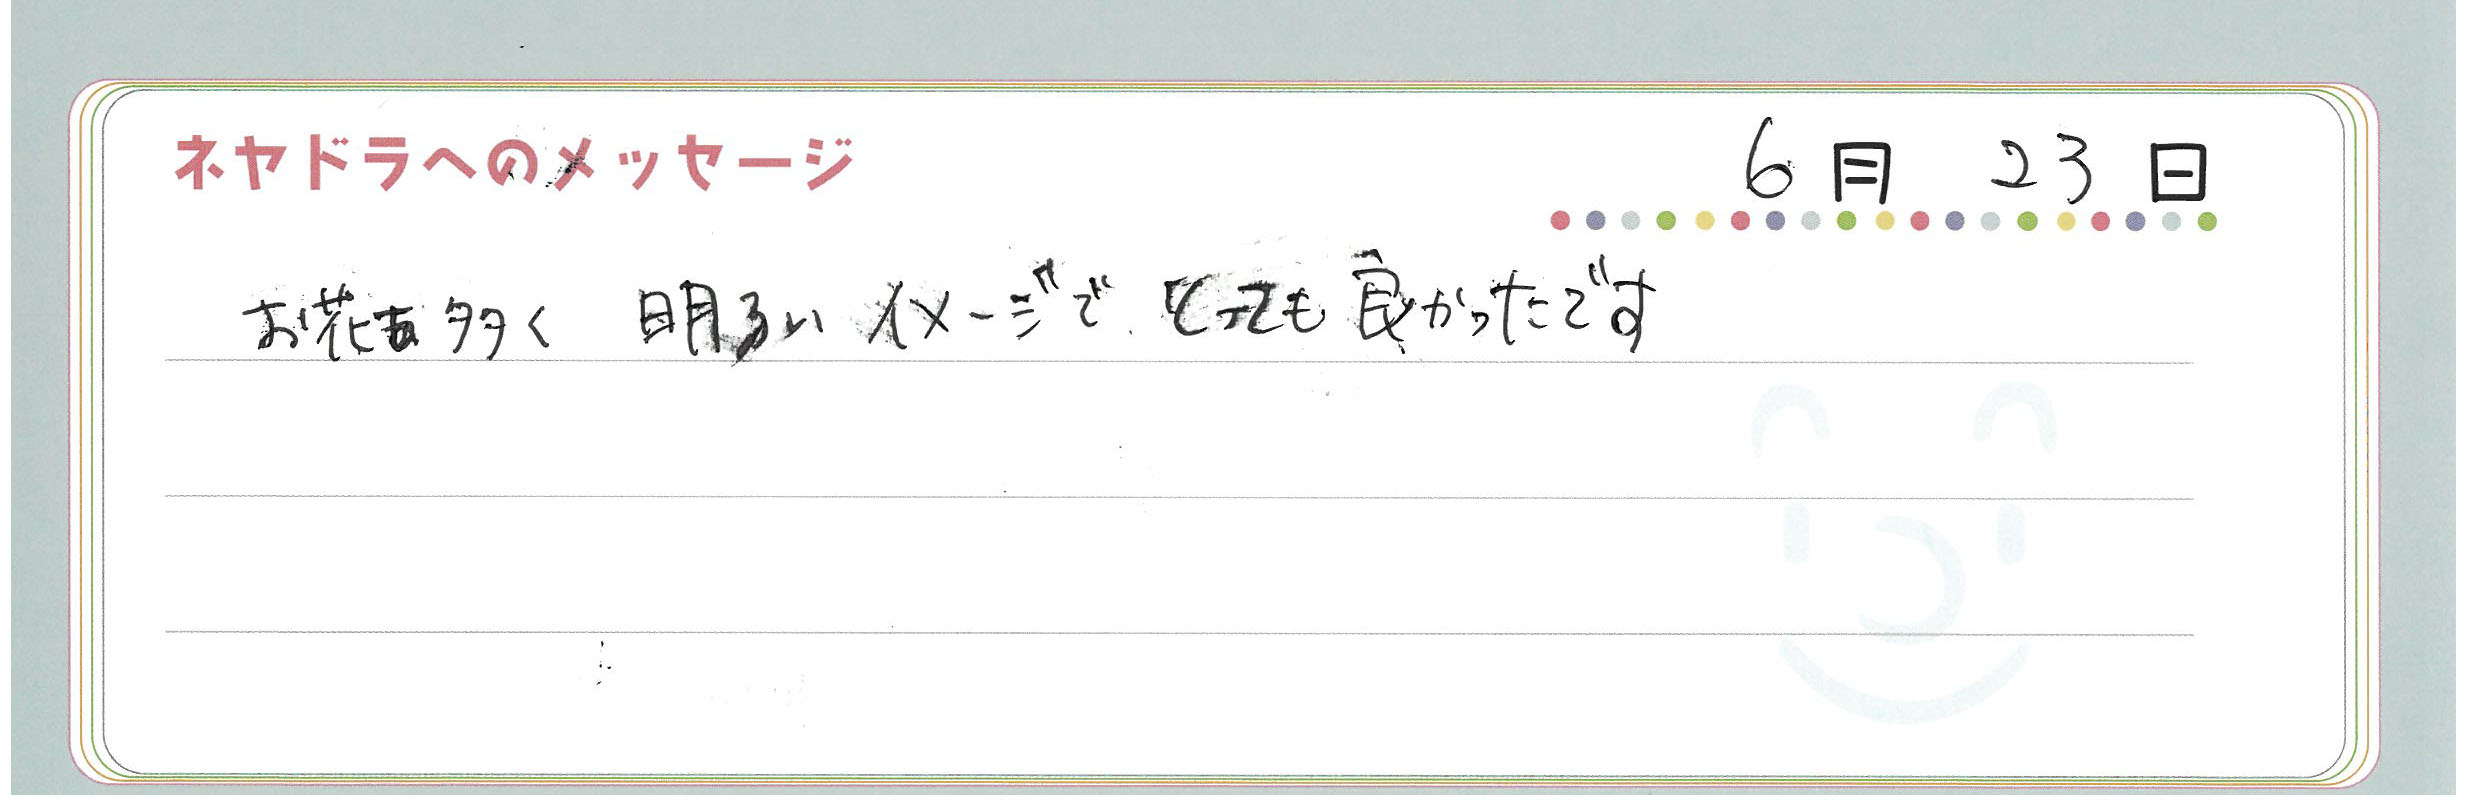 ネヤドラへのメッセージ
6月 23日
お花も多く 明るいイメージで、とっても良かったです